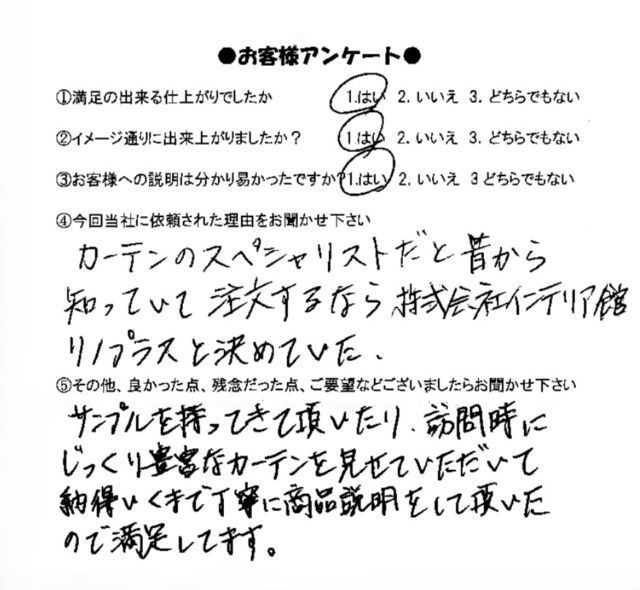 ●お客様アンケート●
①満足の出来る仕上がりでしたか 1.はい 2.いいえ 3.どちらでもない
②イメージ通りに出来上がりましたか？ 1.はい 2.いいえ 3.どちらでもない
③お客様への説明は分かり易かったですか？1.はい 2.いいえ 3どちらでもない
④今回当社に依頼された理由をお聞かせ下さい
カーテンのスペシャリストだと昔から
知っていて注文するなら、株式会社インテリア館
リノプラスと決めていた、
⑤その他、良かった点、残念だった点、ご要望などございましたらお聞かせ下さい
サンプルを持ってきて頂いたり、訪問時に
じっくり豊富なカーテンを見せていただいて
納得いくまで丁寧に商品説明をして頂いた
ので満足してます。